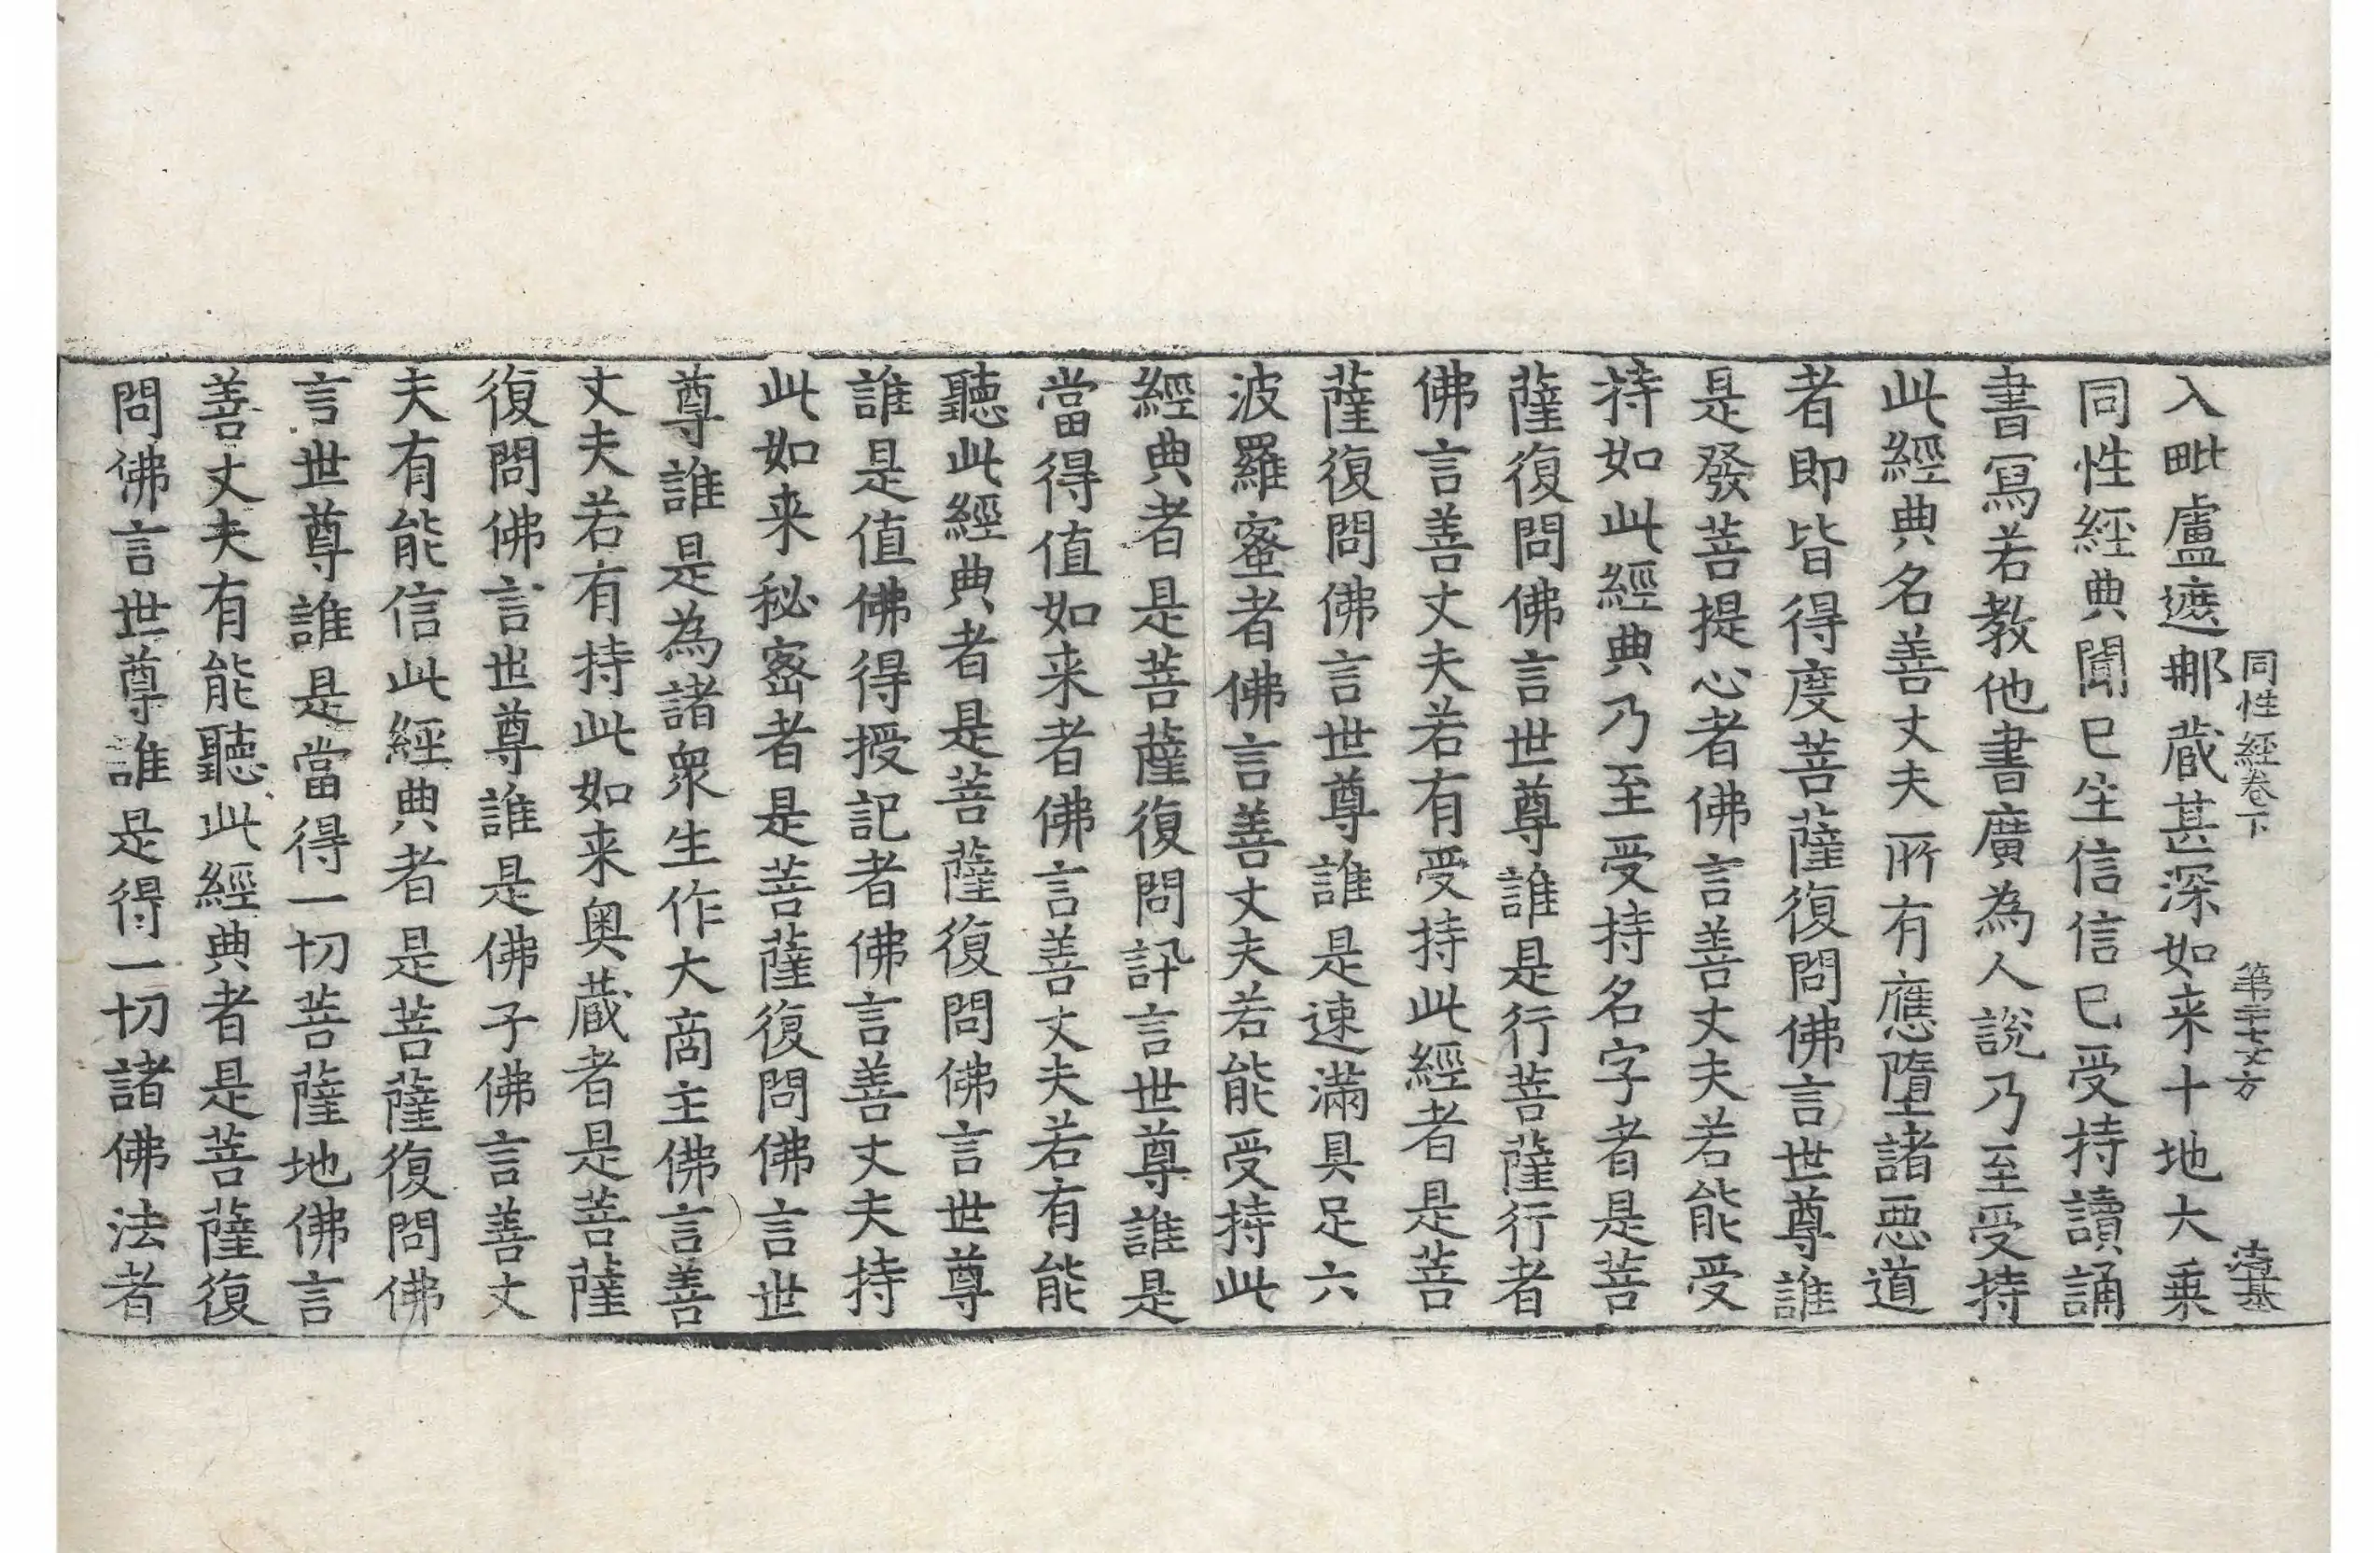 同性經卷下　第二十七丈　方
入毗盧遮那藏甚深如来十地大乗
同性經典聞已生信信已受持讀誦
書寫若教他書廣為人說乃至受持
此經典名善丈夫所有應墮諸惡道
者即皆得度菩薩復問佛言世尊誰
是發菩提心者佛言善丈夫若能受
持如此經典乃至受持名字者是菩
薩復問佛言世尊誰是行菩薩行者
佛言善丈夫若有受持此經者是菩
薩復問佛言世尊誰是速滿具足六
波羅蜜者佛言善丈夫若能受持此
經典者是菩薩復問訊言世尊誰是
當得值如来者佛言善丈夫若有能
聽此經典者是菩薩復問佛言世尊
誰是值佛得授記者佛言善丈夫持
此如来秘密者是菩薩復問佛言世
尊誰是為諸衆生作大商主佛言善
丈夫若有持此如来奥藏者是菩薩
復問佛言世尊誰是佛子佛言善丈
夫有能信此經典者是菩薩復問佛
言世尊誰是當得一切菩薩地佛言
善丈夫有能聽此經典者是菩薩復
問佛言世尊誰是得一切諸佛法者